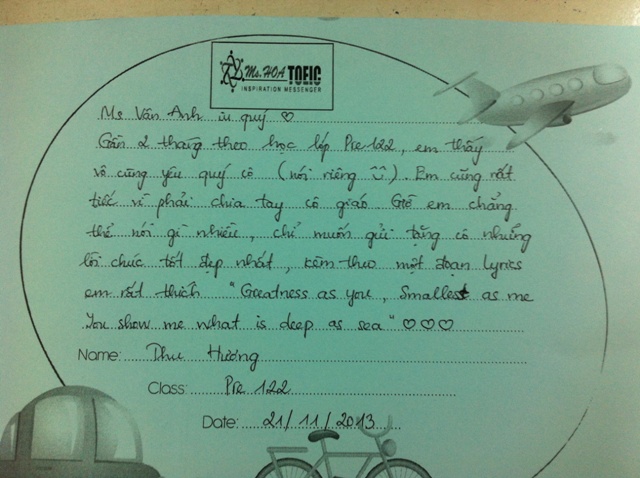 Ms. HOA TOEIC
INSPIRATION MESSENGER
Ms Vân Anh iu quý ♡
Gần 2 tháng theo học lớp Pre 122, em thấy
vô cùng yêu quý cô (nói riêng ^^). Em cũng rất
tiếc vì phải chia tay cô giáo. Giờ em chẳng
thể nói gì nhiều, chỉ muốn gửi tặng cô những
lời chúc tốt đẹp nhất, kèm theo một đoạn lyrics
em rất thích "Greatness as you, Smallest as me
You show me what is deep as sea" ♡♡♡
Name: Thu Hương
Class: Pre 122
Date: 21/11/2013